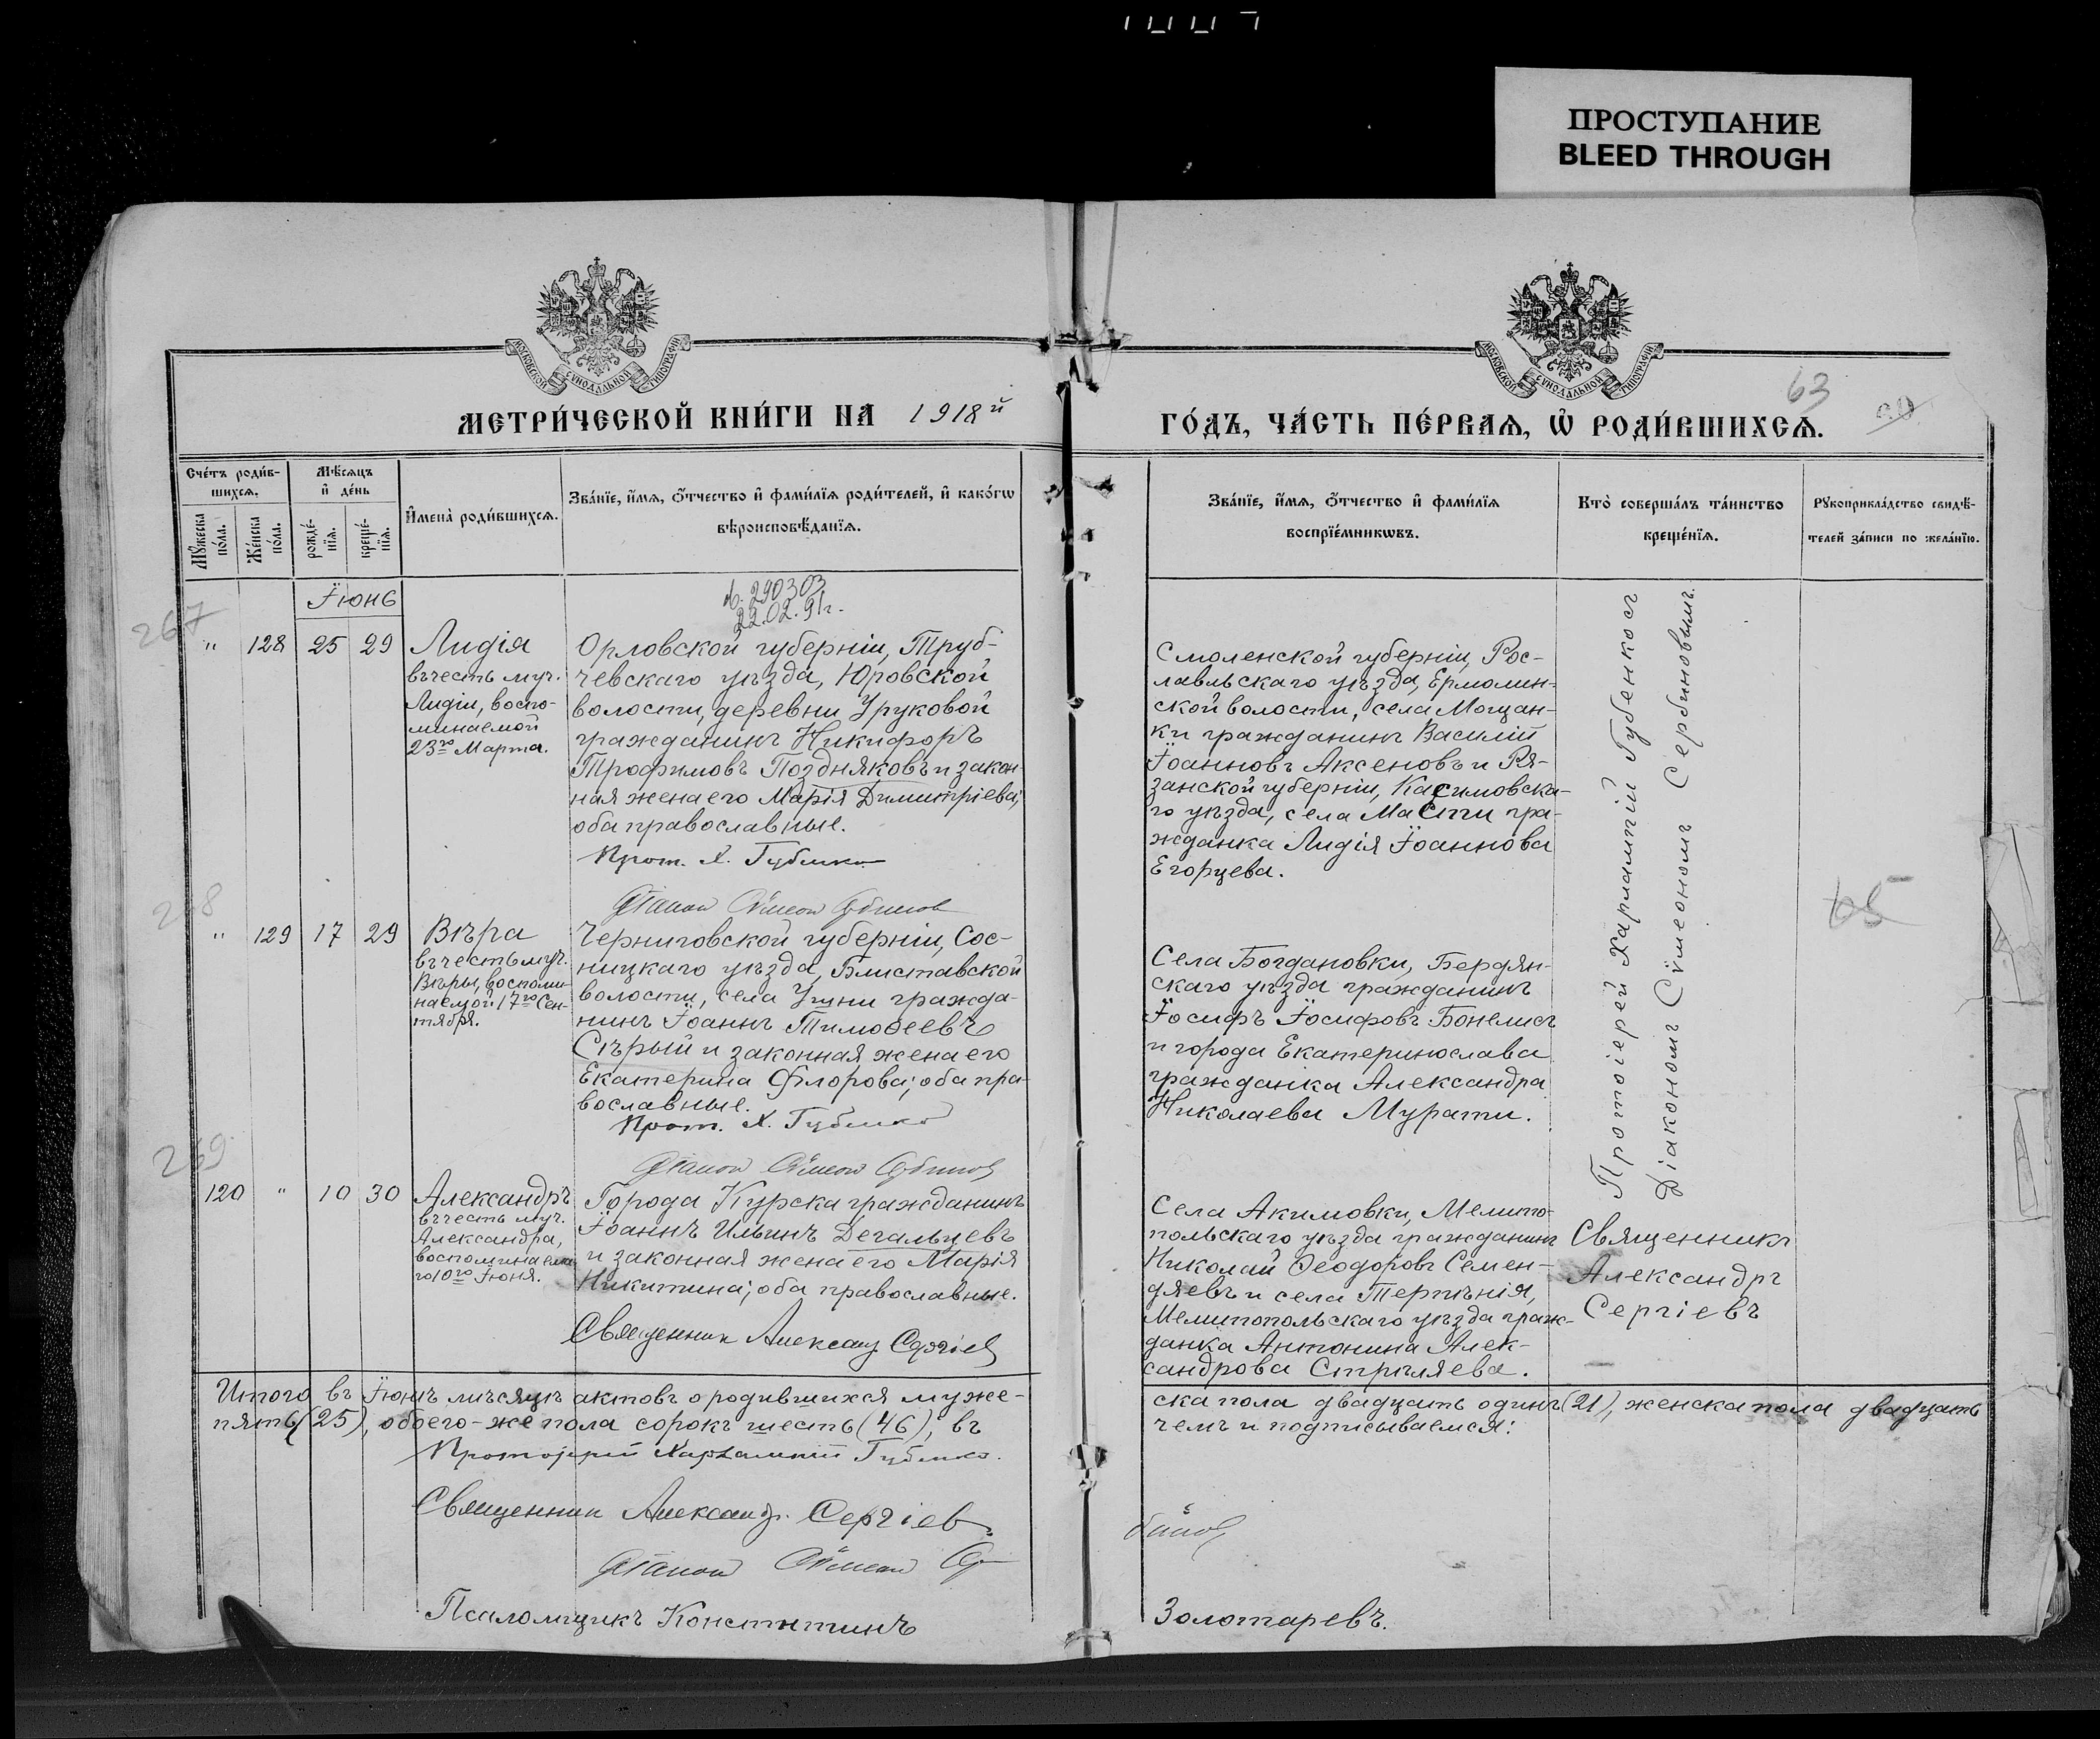 ПРОСТУПАНИЕ
BLEED THROUGH
МОСКОВСКОЙ СѴНОДАЛЬНОЙ ТИПОГРАФІИ
МОСКОВСКОЙ СѴНОДАЛЬНОЙ ТИПОГРАФІИ
МЕТРИ́ЧЕСКОЙ КНИ́ГИ НА 1918й
ГО́ДЪ, ЧА́СТЬ ПЕ́РВАѦ, Ѡ҆ РОДИ́ВШИХСѦ.
63
Сче́тъ роди́в-
шихсѧ.
Мꙋ́жеска
по́ла.
Же́нска
по́ла.
Мѣ́сѧцъ
и҆ де́нь
рожде́-
нїѧ.
креще́-
нїѧ.
И҆мена̀ роди́вшихсѧ.
Зва́нїе, и҆́мѧ, ѻ҆́тчество и҆ фами́лїѧ роди́телей, и҆ како́гѡ
вѣроисповѣ́данїѧ.
Зва́нїе, и҆́мѧ, ѻ҆́тчество и҆ фами́лїѧ
воспрїе́мникѡвъ.
Кто̀ соверша́лъ та́инство
креще́нїѧ.
Рꙋкоприкла́дство свидѣ́-
телей за́писи по жела́нїю.
Їюнь
290303
22.02.91г.
267
" 128 25 29
Лидія
въ честь муч.
Лидіи, воспо-
минаемой
23го Марта.
Орловской губерніи, Труб-
чевскаго уѣзда, Юровской
волости, деревни Уруковой
гражданинъ Никифоръ
Трофимовъ Поздняковъ и закон-
ная жена его Марія Димитріева;
оба православные.
Прот. Х. Губенко
Діаконъ Сѵмеонъ Сербиновъ
Смоленской губерніи, Рос-
лавльскаго уѣзда, Ермолин-
ской волости, села Мощан-
ки гражданинъ Василій
Їоанновъ Аксеновъ и Ря-
занской губерніи, Касимовска-
го уѣзда, села Масти гра-
жданка Лидія Їоаннова
Егорцева.
Протоіерей Харлампій Губенко съ
Діакономъ Сѵмеономъ Сербиновымъ.
65
268
" 129 17 29
Вѣра
въ честь муч.
Вѣры, воспоми-
наемой 17го Сен-
тября.
Черниговской губерніи, Сос-
ницкаго уѣзда, Блиставской
волости, села Угини гражда-
нинъ Їоаннъ Тимоѳеевъ
Сѣрый и законная жена его
Екатерина Флорова; оба пра-
вославные.
Прот. Х. Губенко
Діаконъ Сѵмеонъ Сербиновъ
Села Богдановки, Бердян-
скаго уѣзда гражданинъ
Їосифъ Їосифовъ Бонелисъ
и города Екатеринослава
гражданка Александра
Николаева Мурати.
269
120 " 10 30
Александръ
въ честь муч.
Александра,
воспоминаема-
го 10го Їюня.
Города Курска гражданинъ
Їоаннъ Ильинъ Дегальцевъ
и законная жена его Марія
Никитина; оба православные.
Священник Александр Сергіев
Села Акимовки, Мелито-
польскаго уѣзда гражданинъ
Николай Ѳеодоровъ Семен-
дяевъ и села Терпѣнія,
Мелитопольскаго уѣзда граж-
данка Антонина Алек-
сандрова Стрѣляева.
Священникъ
Александръ
Сергіевъ
Итого въ Їюнѣ мѣсяцѣ актовъ о родившихся муже-
ска пола двадцать одинъ (21), женска пола двадцать
пять (25), обоего-же пола сорокъ шесть (46), въ
чемъ и подписываемся:
Протоіерей Харлампій Губенко.
Священник Александр Сергіев.
Діаконъ Сѵмеонъ Сер-
биновъ
Псаломщикъ Константинъ
Золотаревъ.